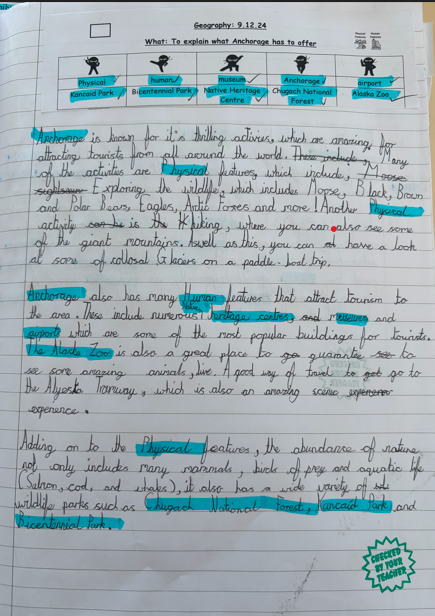 Geography: 9.12.24
What: To explain what Anchorage has to offer
Physical human museum Anchorage airport
Kancaid Park Bicentennial Park Native Heritage Centre Chugach National Forest Alaska Zoo
Anchorage is known for it's thrilling activies, which are amazing for
attracting tourists from all around the world. These include Many
of the activities are Physical features, which include, Moose
sightseein Exploring the wildlife, which includes Moose, Black, Brown
and Polar Bears, Eagles, Artic Foxes and more! Another Physical
activity is the Hiking, where you can also see some
of the giant mountains. Aswell as this, you can have a look
at some of collosal Glacers on a paddle-boat trip.
Anchorage also has many Human features that attract tourism to
the area. These include numerous Native heritage centres, and museums and
airports which are some of the most popular buildings for tourists.
The Alaska Zoo is also a great place to go guarantee to
see some amazing animals, live. A good way of travel to get go to
the Alyeska Tramway, which is also an amazing scenic
experence.
Adding on to the Physical features, the abundanse of nature
not only includes many mammals, birds of prey and aquatic life
(Salmon, cod, and whales), it also has a wide variety of
wildlife parks such as Chugach National Forest, Kancaid Park and
Bicentennial Park.
CHECKED
BY YOUR
TEACHER